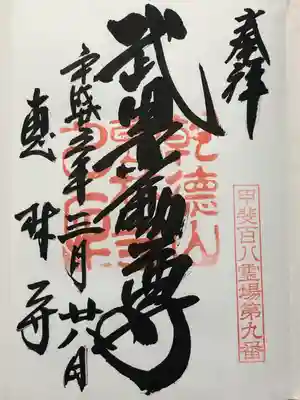 奉拝
甲斐百八霊場第九番
武田不動尊
乾徳山
平成三年三月廿八日
恵林寺